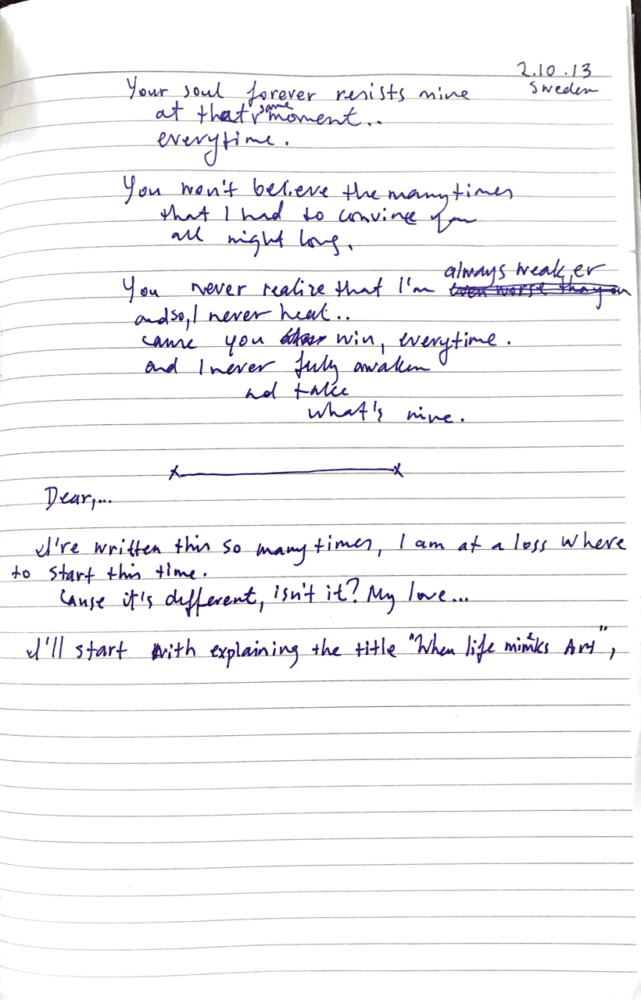 2.10.13
Sweden
Your soul forever resists mine
at that same moment..
everytime.
You won't believe the manytimes
that I had to convince you
all night long.
You never realize that I'm always weaker
and so, I never heal..
cause you win, everytime.
and I never fully awaken
and take
what's mine.
Dear,...
I've written this so many times, I am at a loss where
to start this time.
Cause it's different, isn't it? My love...
I'll start with explaining the title "When life mimiks Art",